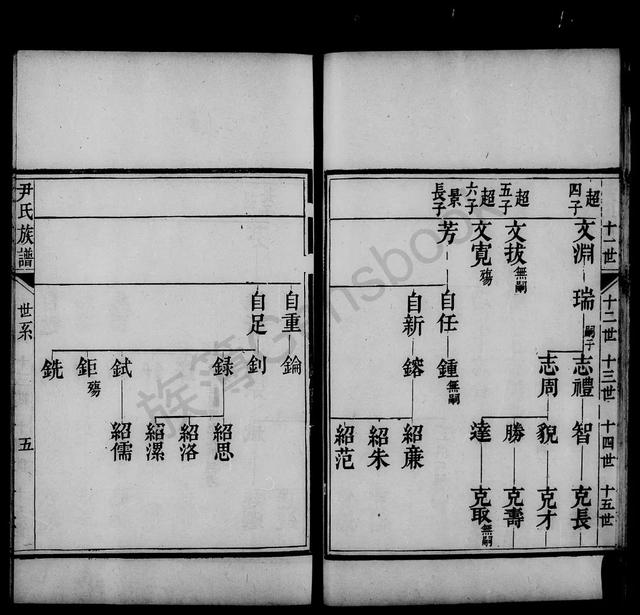 十一世
十二世
十三世
十四世
十五世
超四子
文淵
瑞
嗣子
志禮
智
克長
志周
貌
克才
超五子
文拔無嗣
勝
克壽
超六子
文寬殤
達
克取無嗣
景長子
芳
自任
鍾無嗣
自新
鎔
紹廉
紹朱
紹范
自重
鑰
自足
釗
録
紹思
紹洛
紹漯
鉽
紹儒
鉅殤
銑
尹氏族譜
世系
五